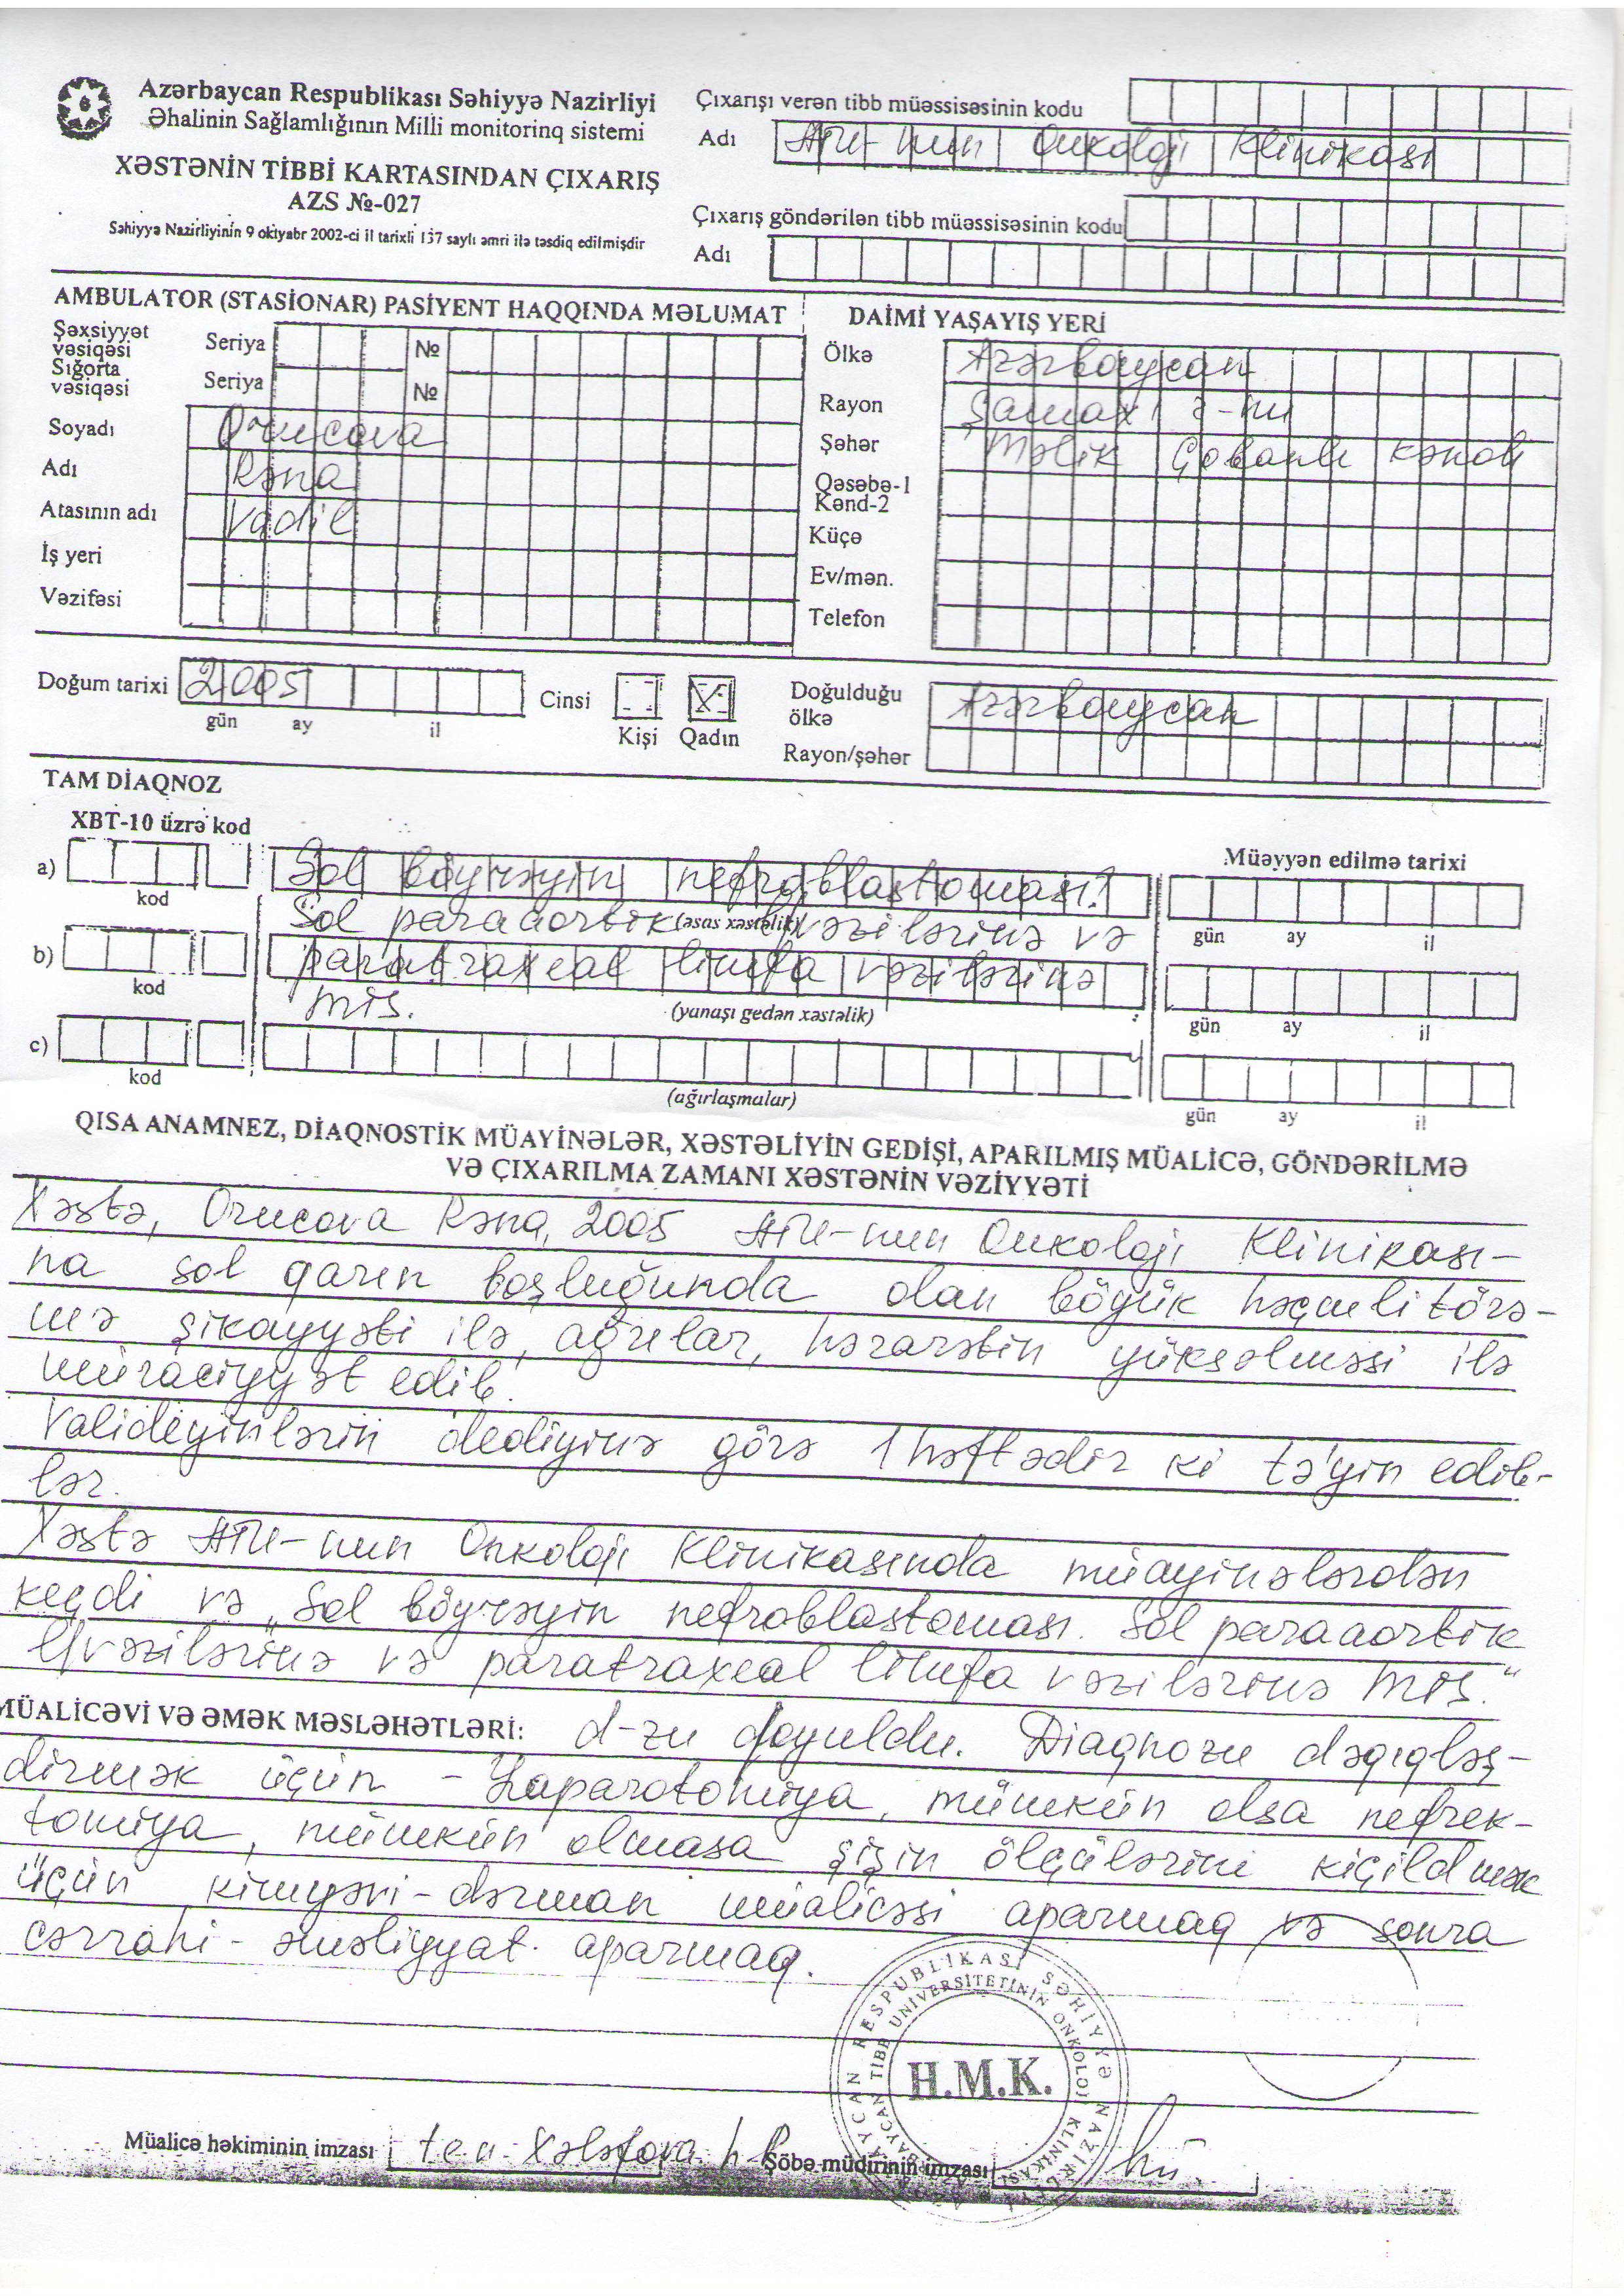 Azərbaycan Respublikası Səhiyyə Nazirliyi
Əhalinin Sağlamlığının Milli monitorinq sistemi
XƏSTƏNİN TİBBİ KARTASINDAN ÇIXARIŞ
AZS №-027
Səhiyyə Nazirliyinin 9 oktyabr 2002-ci il tarixli 137 saylı əmri ilə təsdiq edilmişdir
Çıxarışı verən tibb müəssisəsinin kodu
Adı ATU-nun Onkoloji Klinikası
Çıxarış göndərilən tibb müəssisəsinin kodu
Adı
AMBULATOR (STASİONAR) PASİYENT HAQQINDA MƏLUMAT
Şəxsiyyət vəsiqəsi Seriya №
Sığorta vəsiqəsi Seriya №
Soyadı Orucova
Adı Rəna
Atasının adı Vadil
İş yeri
Vəzifəsi
DAİMİ YAŞAYIŞ YERİ
Ölkə Azərbaycan
Rayon Şamaxı r-nu
Şəhər Məlik Çobanlı kəndi
Qəsəbə-1
Kənd-2
Küçə
Ev/mən.
Telefon
Doğum tarixi 2005
gün ay il
Cinsi X
Kişi Qadın
Doğulduğu ölkə Azərbaycan
Rayon/şəhər
TAM DİAQNOZ
XBT-10 üzrə kod
Müəyyən edilmə tarixi
a) Sol böyrəyin nefroblastoması!
kod
Sol paraaortik (əsas xəstəlik) l/vəzilərinə və
gün ay il
b) paratraxeal limfa vəzilərinə
kod
mts. (yanaşı gedən xəstəlik)
gün ay il
c)
kod
(ağırlaşmalar)
gün ay il
QISA ANAMNEZ, DİAQNOSTİK MÜAYİNƏLƏR, XƏSTƏLİYİN GEDİŞİ, APARILMIŞ MÜALİCƏ, GÖNDƏRİLMƏ
VƏ ÇIXARILMA ZAMANI XƏSTƏNİN VƏZİYYƏTİ
Xəstə, Orucova Rəna, 2005 ATU-nun Onkoloji Klinikası-
na sol qarın boşluğunda olan böyük həcmli törə-
mə şikayyəti ilə, ağrılar, hərarətin yüksəlməsi ilə
müraciyyət edib.
Valideyinlərin dediyinə görə 1 həftədir ki tə'yin edib-
lər.
Xəstə ATU-nun Onkoloji Klinikasında müayinələrdən
keçdi və „Sol böyrəyin nefroblastoması. Sol paraaortik
l/vəzilərinə və paratraxeal limfa vəzilərinə mts.“
MÜALİCƏVİ VƏ ƏMƏK MƏSLƏHƏTLƏRİ: d-zu qoyuldu. Diaqnozu dəqiqləş-
dirmək üçün - Laparotomiya, mümkün olsa nefrek-
tomiya, mümkün olmasa şişin ölçülərini kiçildmək
üçün kimyəvi-dərman müalicəsi aparmaq və sonra
cərrahi-əməliyyat aparmaq.
AZƏRBAYCAN RESPUBLİKASI SƏHİYYƏ NAZİRLİYİ
AZƏRBAYCAN TİBB UNİVERSİTETİNİN ONKOLOJİ KLİNİKASI
H.M.K.
Müalicə həkiminin imzası t.e.n. Xələfova
Şöbə müdirinin imzası